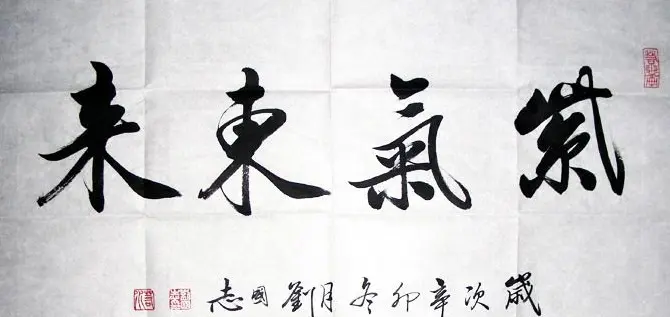 紫氣東来
歲次辛卯冬月劉國志